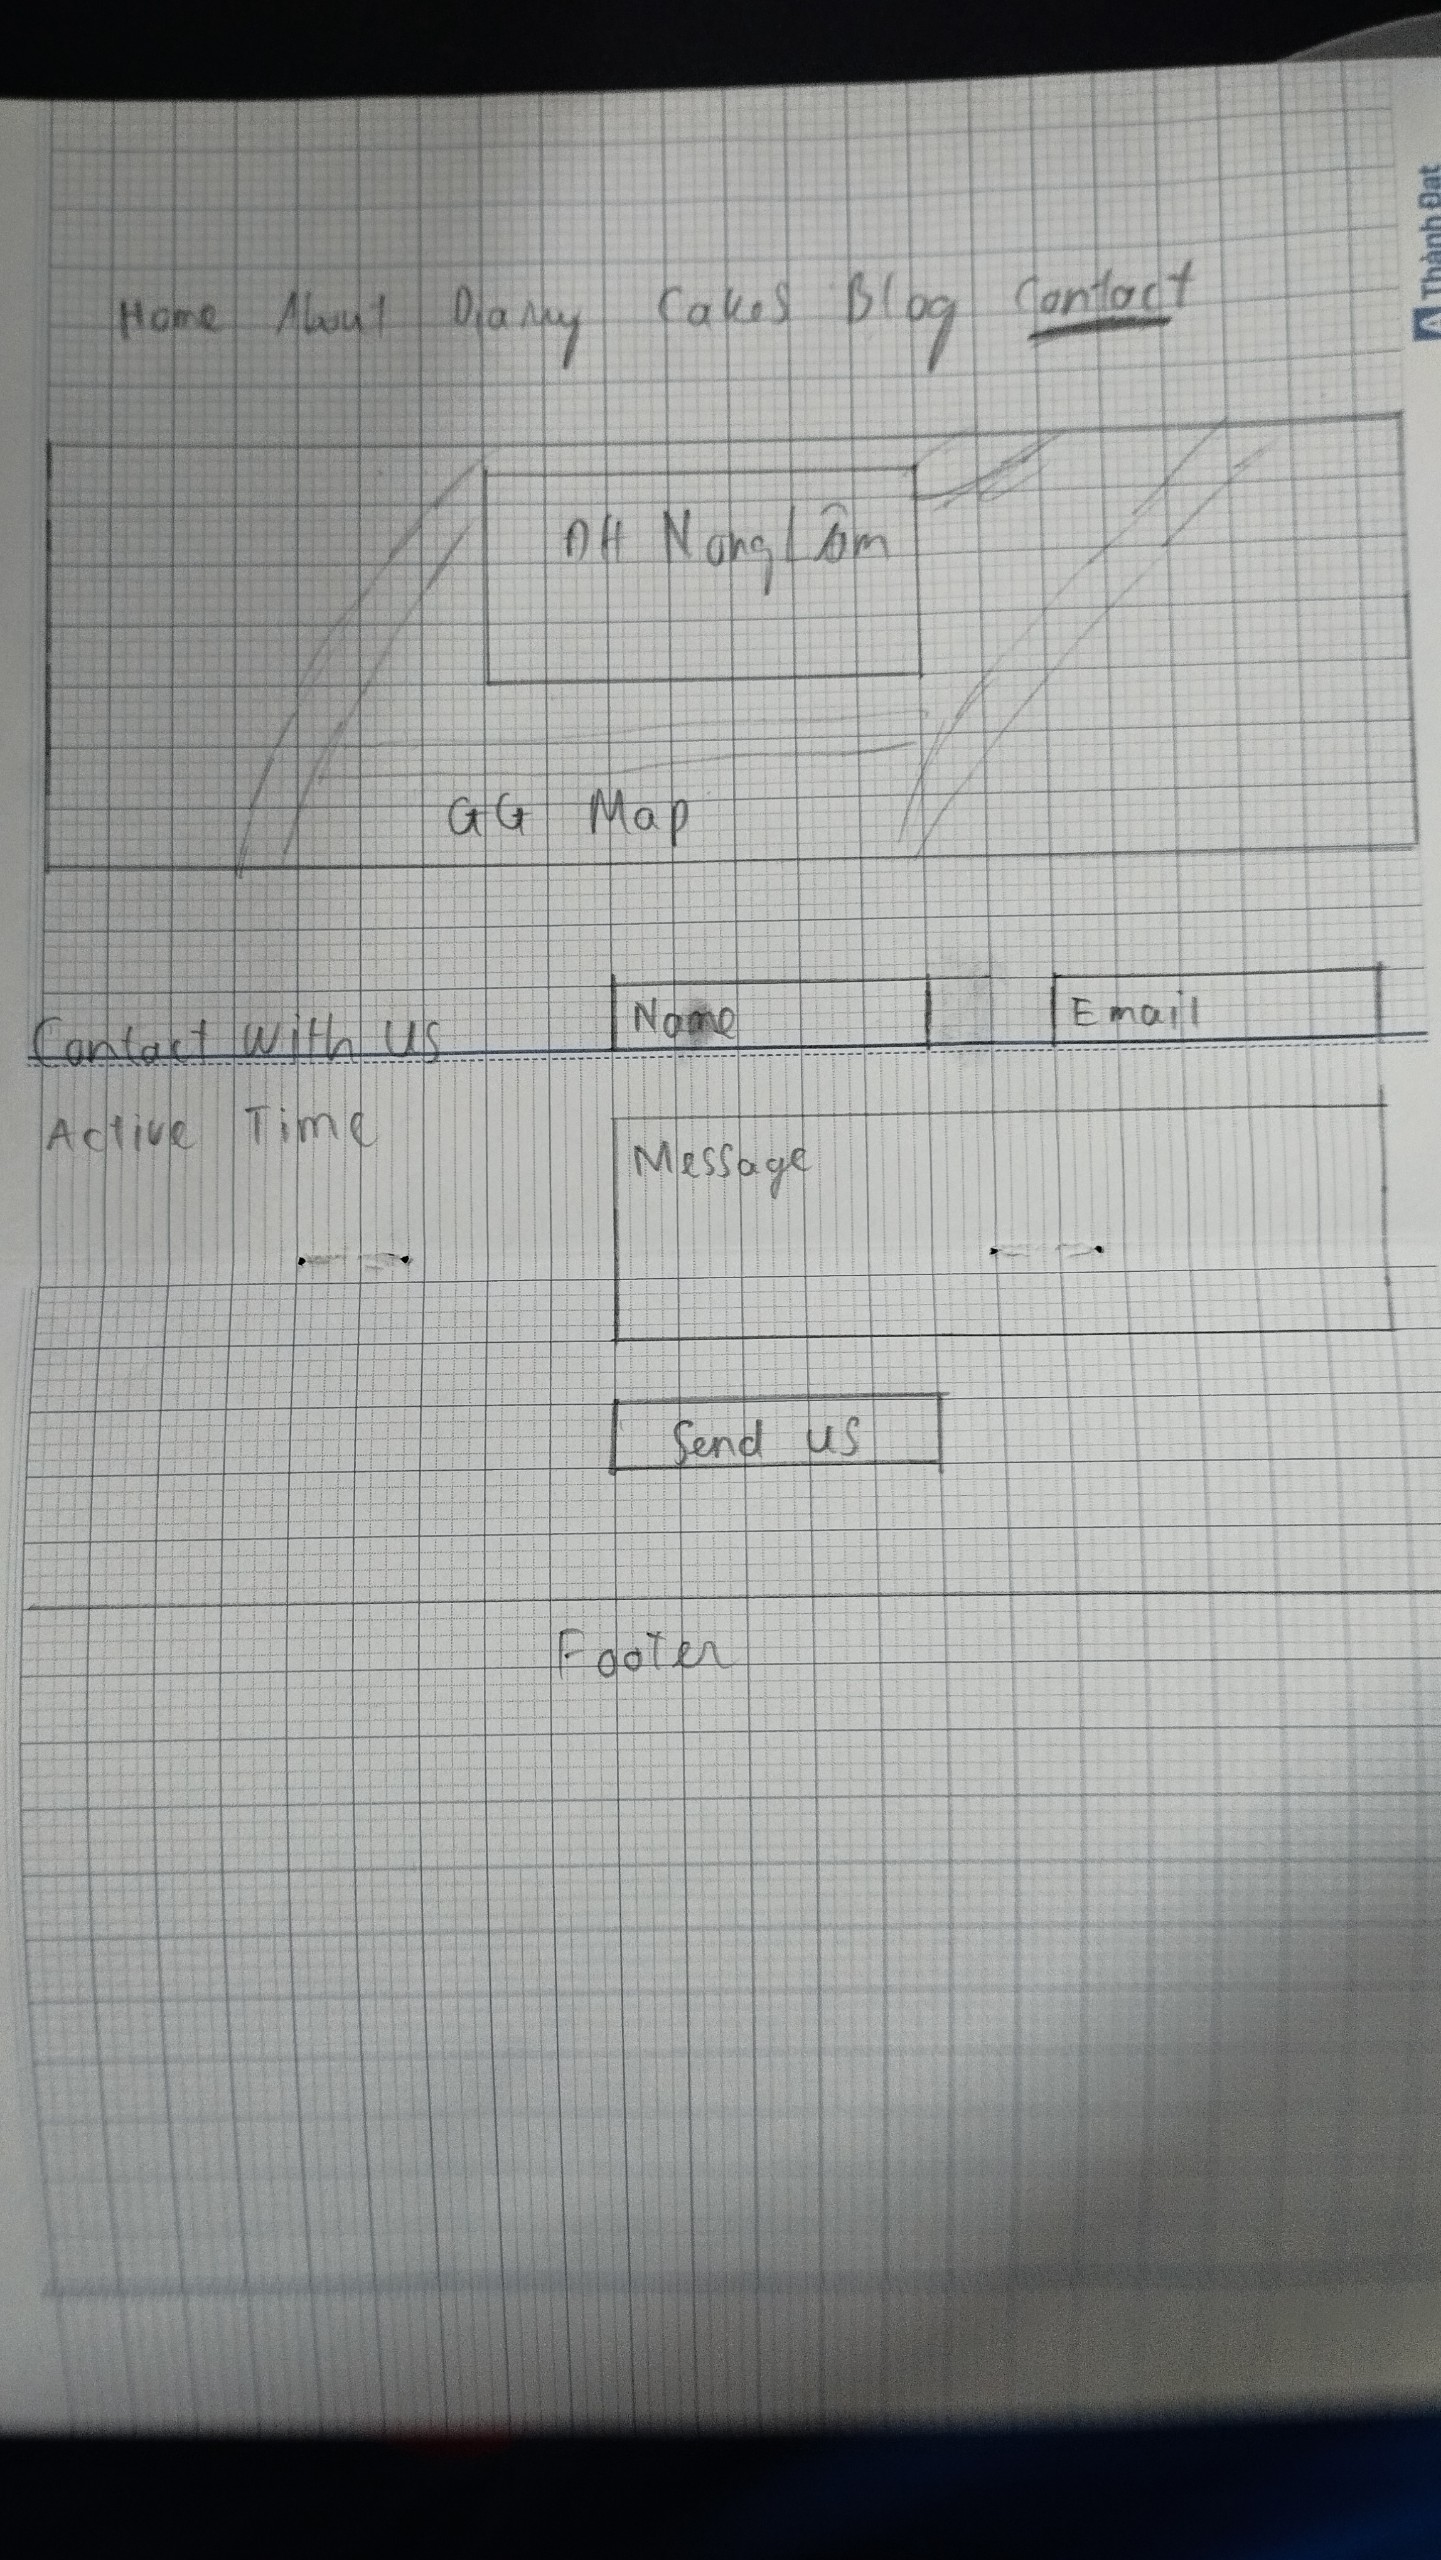 Thành Đạt
Home About Diany Cakes Blog Contact
ĐH Nong Lâm
GG Map
Contact With US
Name
Email
Active Time
Message
Send us
Footer